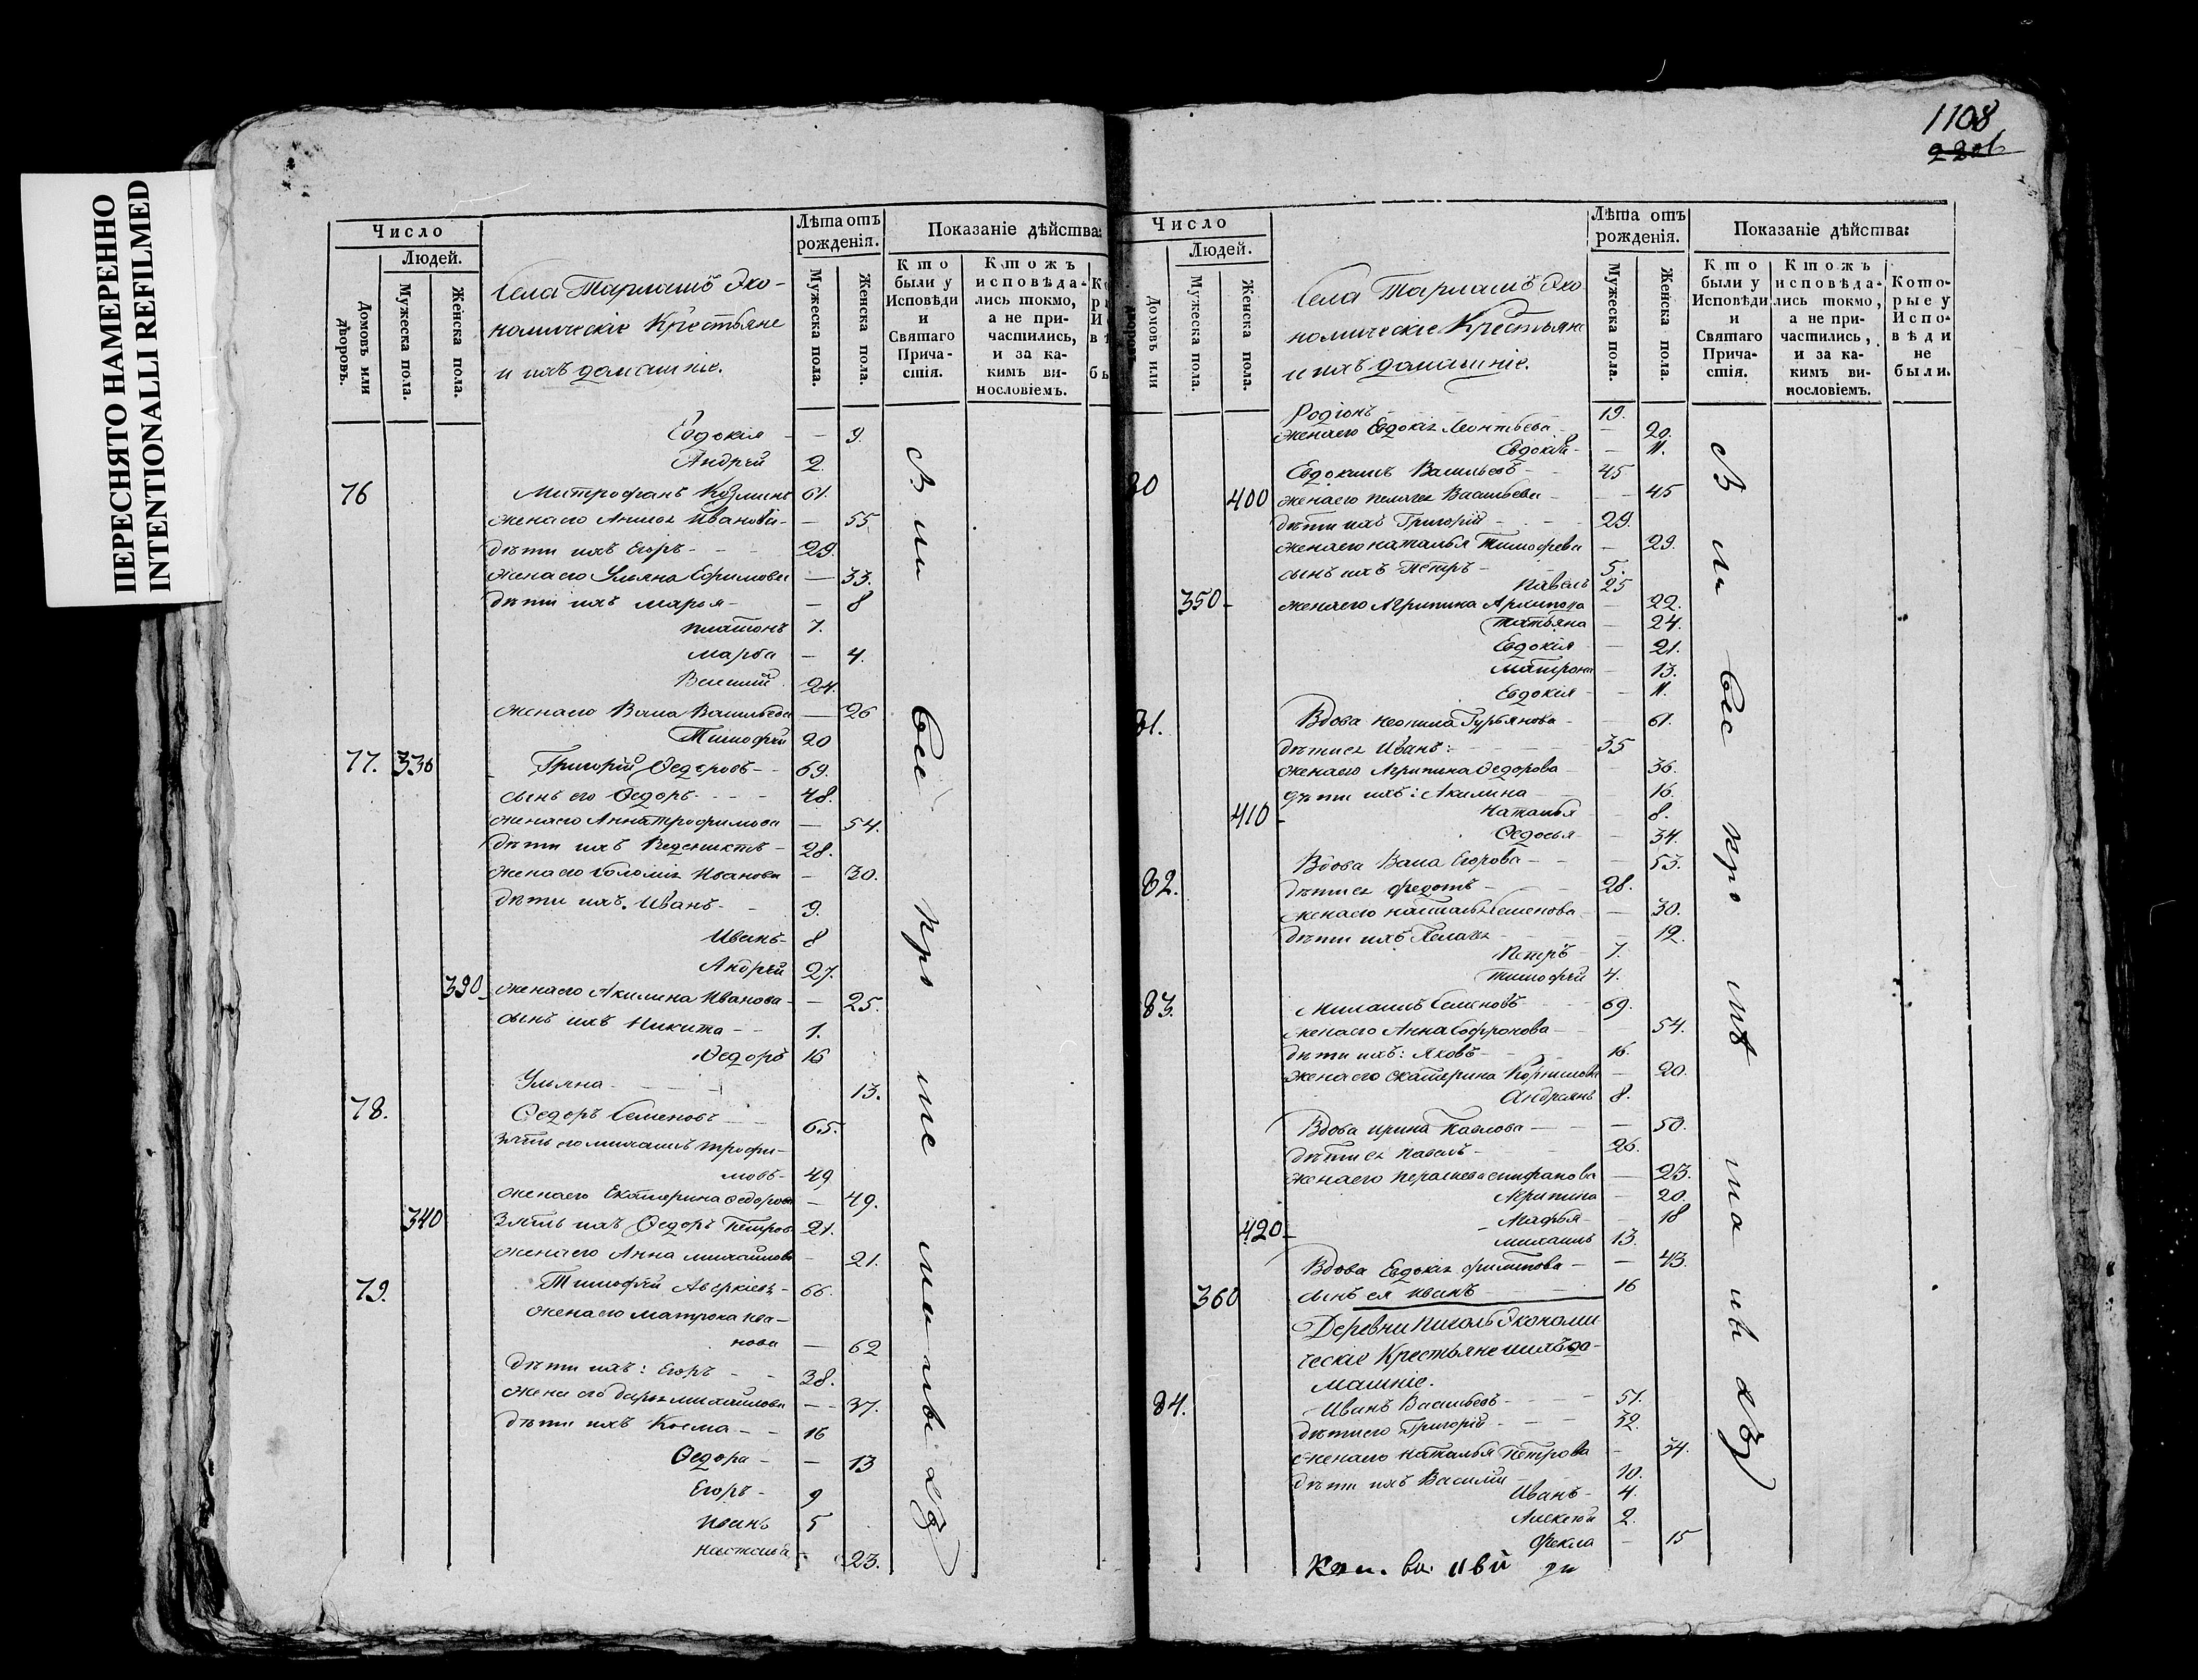 ПЕРЕСНЯТО НАМЕРЕННО
INTENTIONALLI REFILMED
Число
Людей.
Домовъ или дворовъ.
Мужеска пола.
Женска пола.
Села Эко-
номическіе Крестьяне
и ихъ домашніе.
Лѣта отъ рожденія.
Мужеска пола.
Женска пола.
Показаніе дѣйства:
Кто были у Исповѣди и Святаго Прича-стія.
Ктожъ исповѣда-лись токмо, а не при-частились, и за ка-кимъ ви-нословіемъ.
Евдокія - - 9.
Андрей 2
76 Митрофанъ Козминъ 61.
жена его Иванова - - 55
дѣти ихъ Егоръ - - 29.
жена его Ульяна Ефимова - 33.
дѣти ихъ Марья - - 8
Платонъ 7.
Марѳа - 4.
24.
жена его Васильева - 26
Тимофей 20
77. 330 Григорій Ѳедоровъ - - 69.
сынъ его Ѳедоръ - - - 48.
жена его Анна Трофимова - 54.
дѣти ихъ - 28.
жена его Иванова - 30.
дѣти ихъ. Иванъ - - 9.
Иванъ - 8
Андрей 27.
390 - жена его Акилина Иванова - - 25.
сынъ ихъ Никита - - 1.
Ѳедоръ 16
Ульяна - - - 13.
78. Ѳедоръ Семеновъ - - 65.
зять его Трофи-
мовъ - 49
жена его Екатерина Ѳедорова - 49.
340 Зять ихъ Ѳедоръ Петровъ 21.
жена его Анна Михайлова - 21.
79. Тимофей Аверкіевъ - 66.
жена его Матрона Ива-
нова - 62
дѣти ихъ: Егоръ - - 38.
жена его Дарья Михайлова - - 37.
дѣти ихъ Косма - - 16
Ѳедора - - 13
Егоръ - 9
Иванъ 5
23.
1108
Число
Людей.
Домовъ или дворовъ.
Мужеска пола.
Женска пола.
Села Эко-
номическіе Крестьяне
и ихъ домашніе.
Лѣта отъ рожденія.
Мужеска пола.
Женска пола.
Показаніе дѣйства:
Кто были у Исповѣди и Святаго Прича-стія.
Ктожъ исповѣда-лись токмо, а не при-частились, и за ка-кимъ ви-нословіемъ.
Кото-рые у Испо-вѣди не были.
Родіонъ 19.
жена его Евдокія Леонтьева - - 20.
Евдокія - - 11.
80 Евдокимъ Васильевъ - - 45
400 жена его Пелагея Васильева - - - 45
дѣти ихъ Григорій - - - 29.
жена его Наталья Тимофеева - 29.
сынъ ихъ Петръ - - 5.
Павелъ 25
350 - жена его Агрипина - 22.
Татьяна - 24.
Евдокія - - 21.
Матрона - 13.
Евдокія - - 11.
81. Вдова Неонила Гурьянова - - 61.
дѣти ея Иванъ: - - - 35
жена его Агрипина Ѳедорова - 36.
дѣти ихъ: Акилина - - - 16.
410 - Наталья - 8.
Ѳедосья - - 34.
82. Вдова Егорова - - - 53.
дѣти ея Федотъ - - 28.
жена его Наталья Семенова - - 30.
дѣти ихъ Пелагея - - 12.
Петръ - 7.
Тимофей 4.
83. Семеновъ - - 69.
жена его Анна Софронова - - - 54.
дѣти ихъ: Яковъ - - - 16.
жена его Екатерина - 20.
Андреянъ 8.
Вдова Ирина Павлова - - - 50.
дѣти ея Павелъ - - - 26.
жена его - 23.
Агрипина - 20.
420 - Марѳья - - 18
13.
Вдова Евдокія Филипова - - 43.
360 сынъ ея Иванъ - - - 16
Деревни Экономи
ческіе Крестьяне и ихъ до-
машніе.
84. Иванъ Васильевъ - - - 51.
дѣти его Григорій - - - 32.
жена его Наталья Петрова - 34.
дѣти ихъ Василій - - 10.
Иванъ - 4.
Алексѣй 2.
Фекла - 15